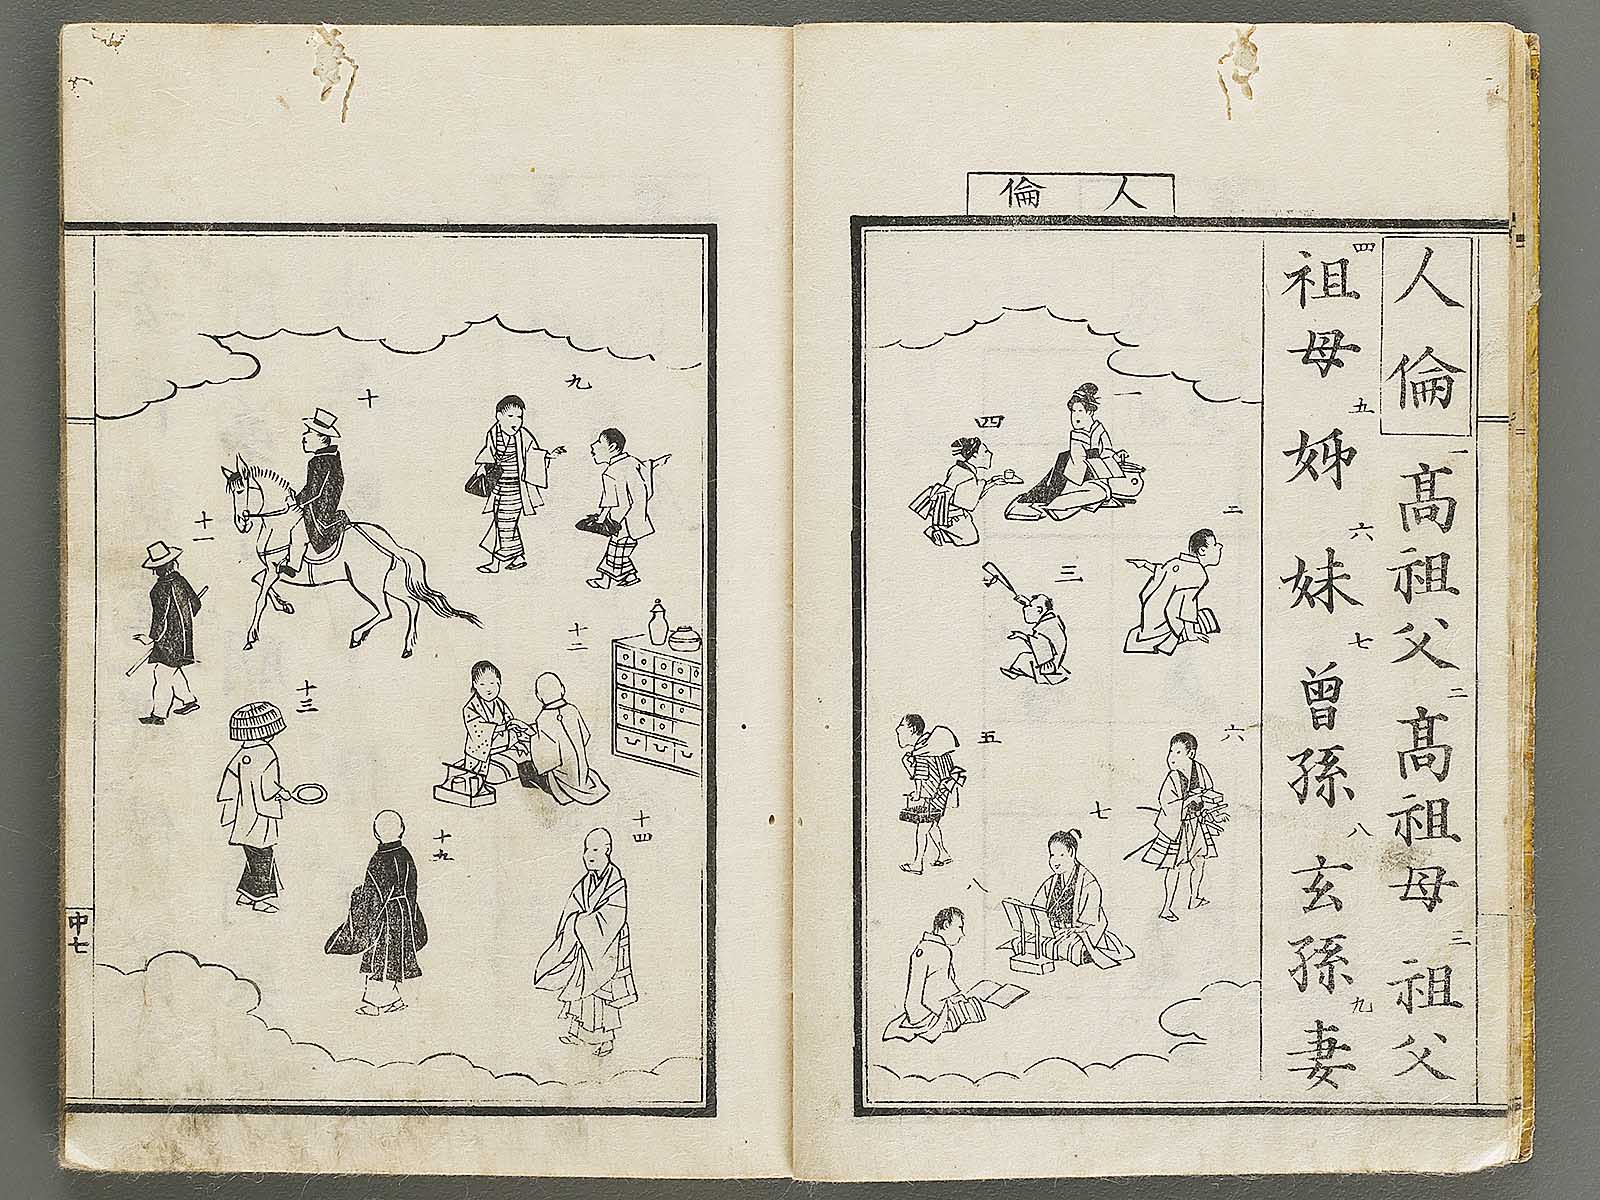 人倫
人倫 一 髙祖父 二 髙祖母 三 祖父
四 祖母 五 姊 六 妹 七 曾孫 八 玄孫 九 妻
一
四
二
三
六
五
七
八
九
十
十一
十二
十三
十四
十五
中七